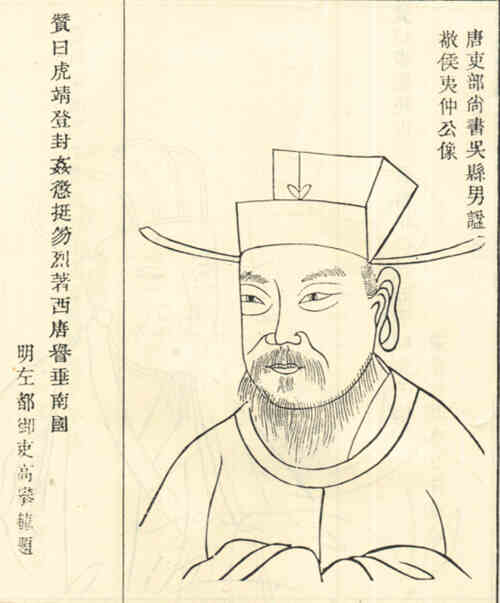 唐吏部尚書吳縣男謚
敬侯夷仲公像
贊曰虎靖登封姦懲挺笏烈著西唐譽垂南國
明左都御史高攀龍題